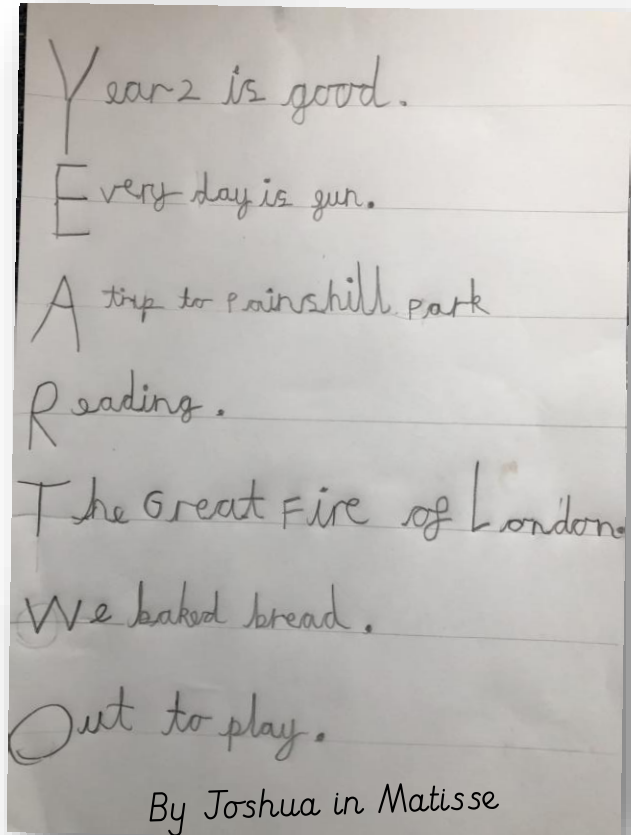 Year 2 is good.
Every day is fun.
A trip to Painshill Park
Reading.
The Great Fire of London.
We baked bread.
Out to play.
By Joshua in Matisse